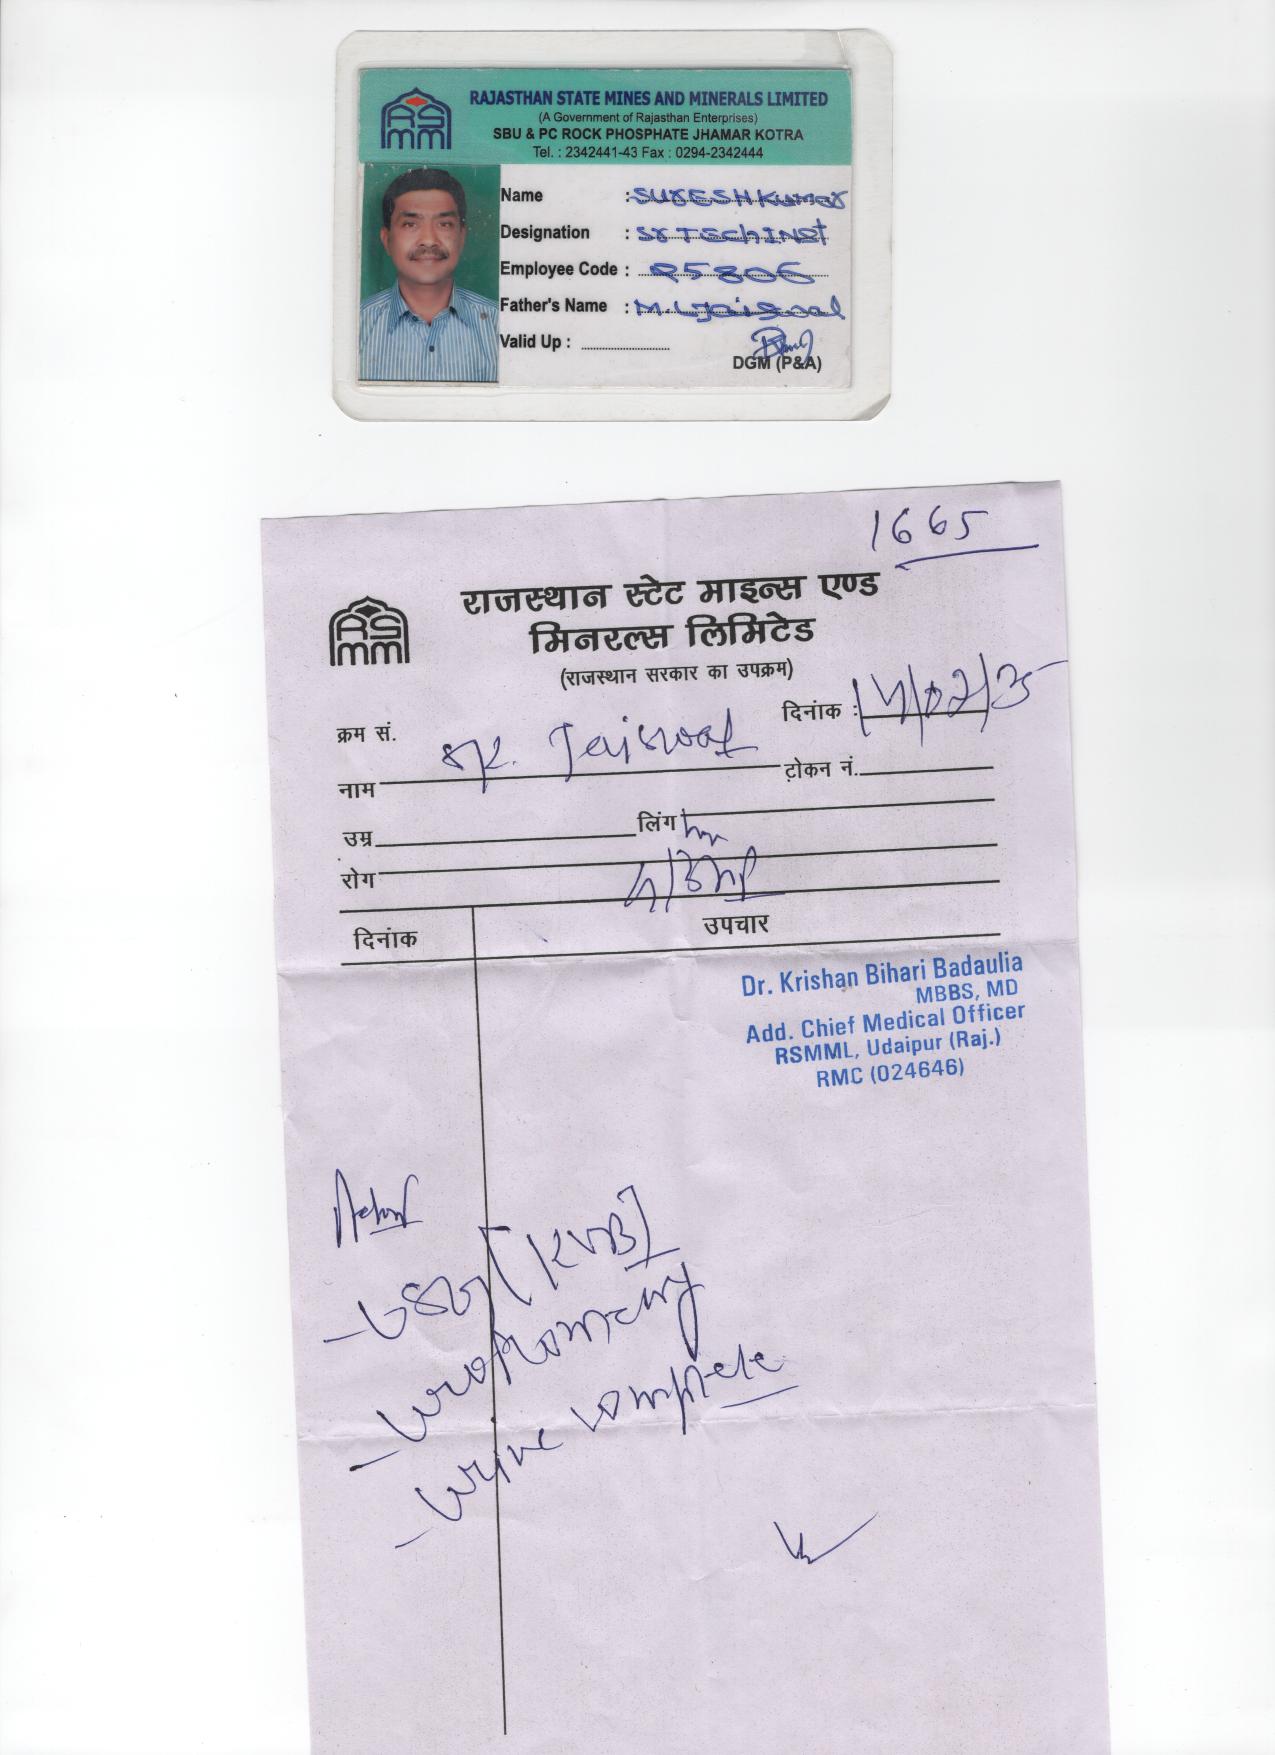 RSMM
RAJASTHAN STATE MINES AND MINERALS LIMITED
(A Government of Rajasthan Enterprises)
SBU & PC ROCK PHOSPHATE JHAMAR KOTRA
Tel. : 2342441-43 Fax : 0294-2342444
Name : SURESH Kumar
Designation : Sr Tech Inst
Employee Code : R5806
Father's Name : M.L Jaiswal
Valid Up :
DGM (P&A)
1665
RSMM
राजस्थान स्टेट माइन्स एण्ड
मिनरल्स लिमिटेड
(राजस्थान सरकार का उपक्रम)
क्रम सं. दिनांक :
नाम S.K. Jaiswal टोकन नं.
उम्र लिंग
रोग
दिनांक उपचार
Dr. Krishan Bihari Badaulia
MBBS, MD
Add. Chief Medical Officer
RSMML, Udaipur (Raj.)
RMC (024646)
- USG [KUB]
- uroflowmetry
- urine complete